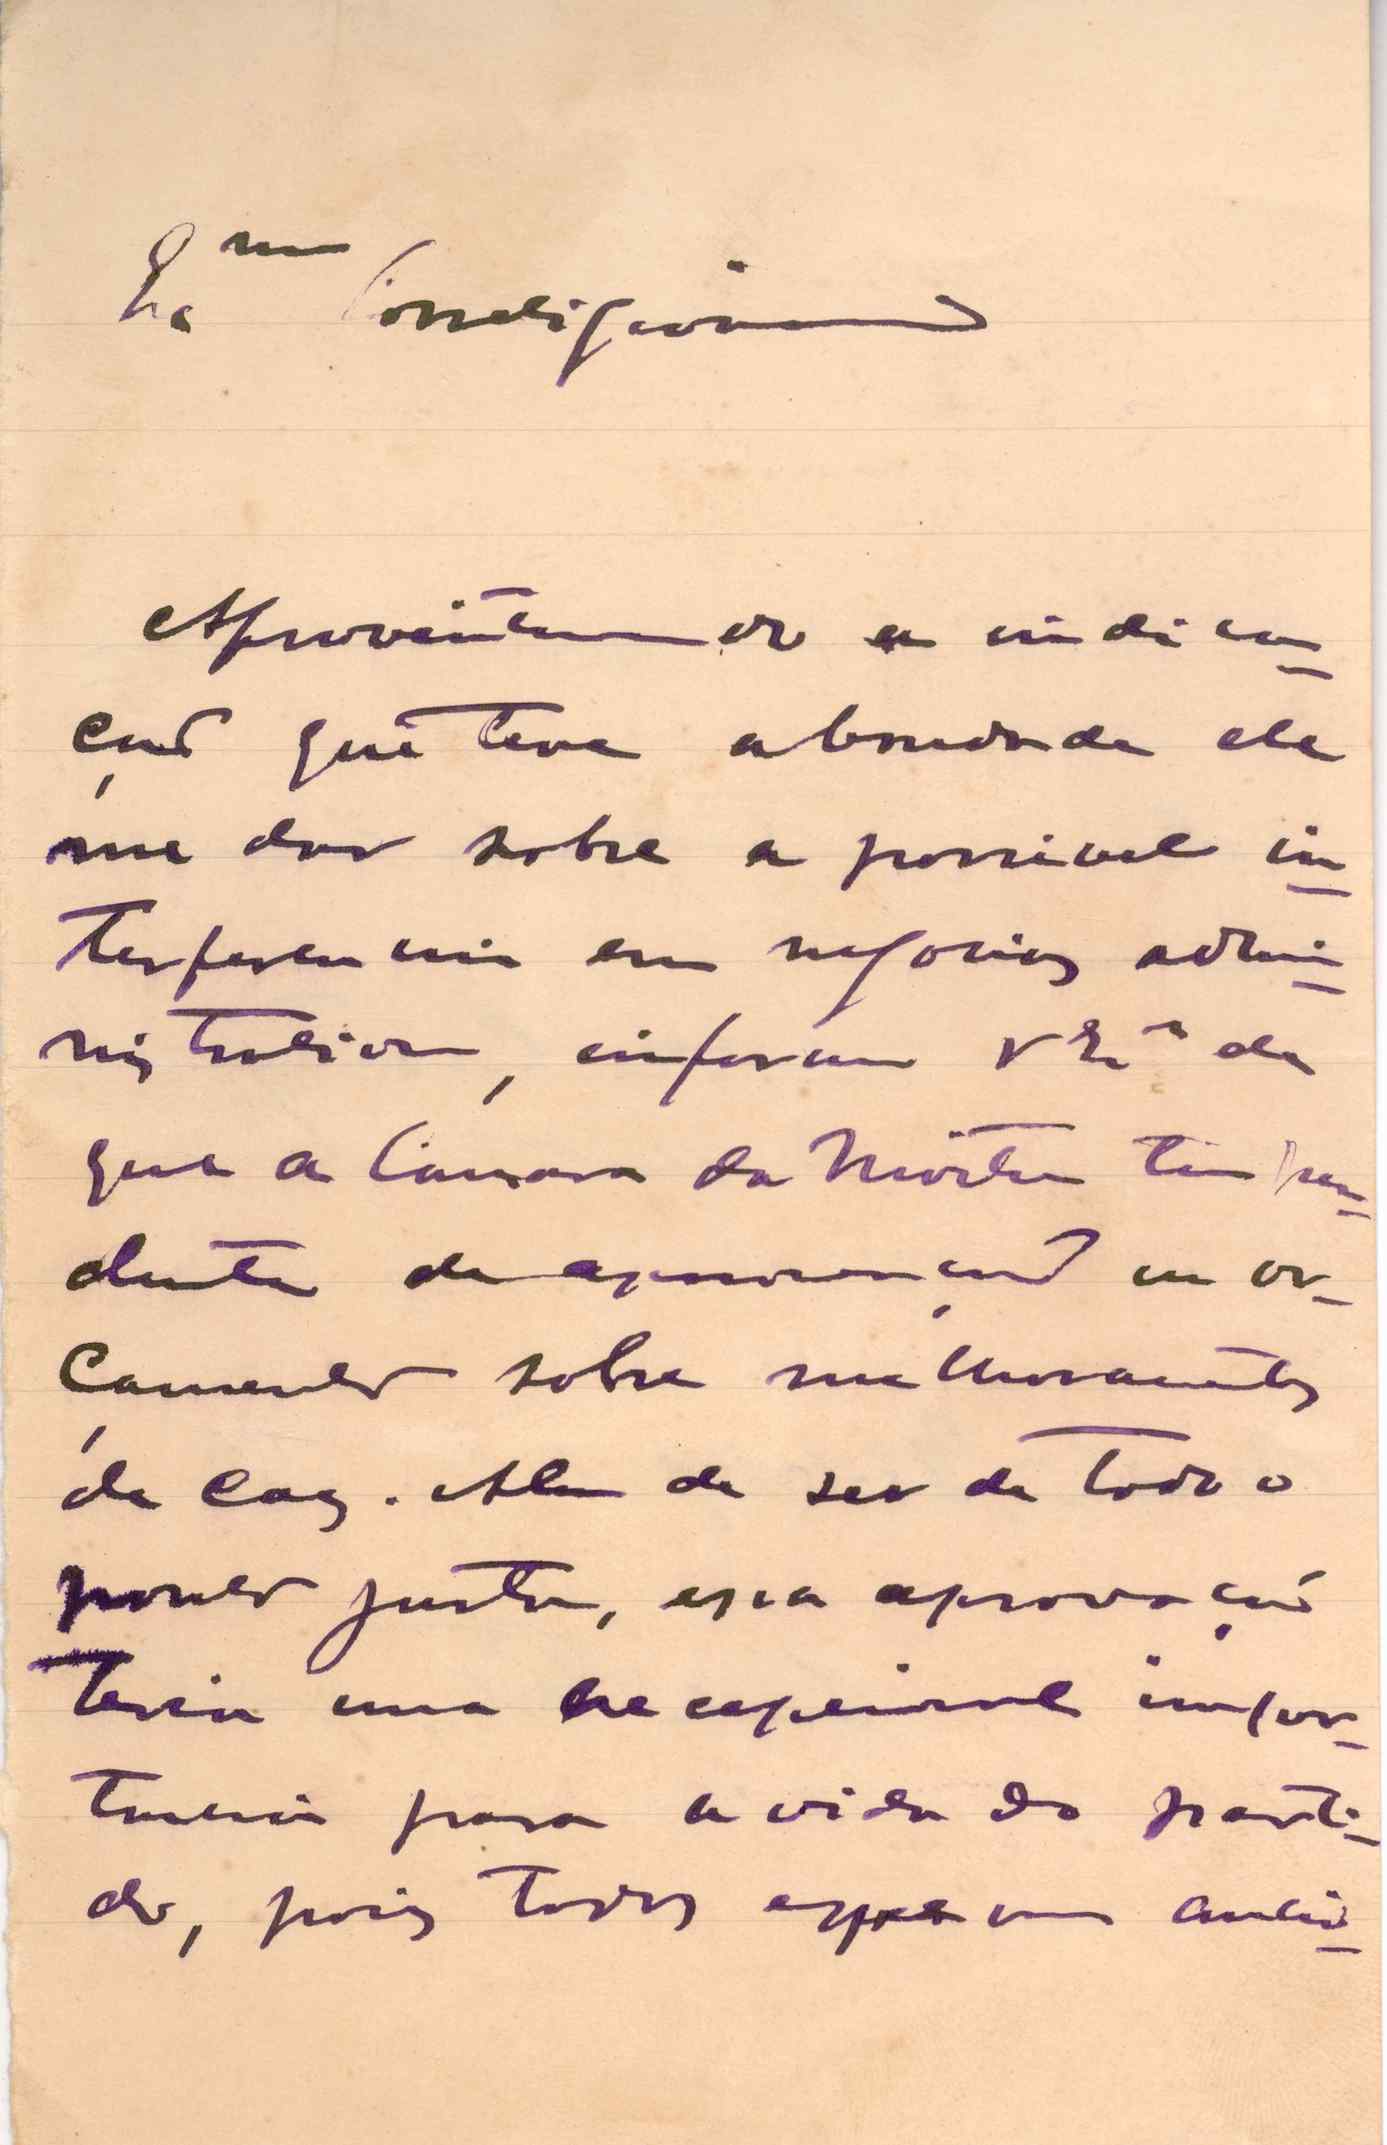 Ex.mo Correligionario
Aproveitando a indica-
ção que teve a bondade de
me dar sobre a possivel in-
terferencia em negocios admi-
nistrativos, informo V Ex.a de
que a Camara da Moita tem pen-
dente de aprovação um or-
çamento sobre melhoramentos
de caes. Alem de ser de todo o
ponto justa, essa aprovação
teria uma excepcional impor-
tancia para a vida do parti-
do, pois todos esperam ancio-